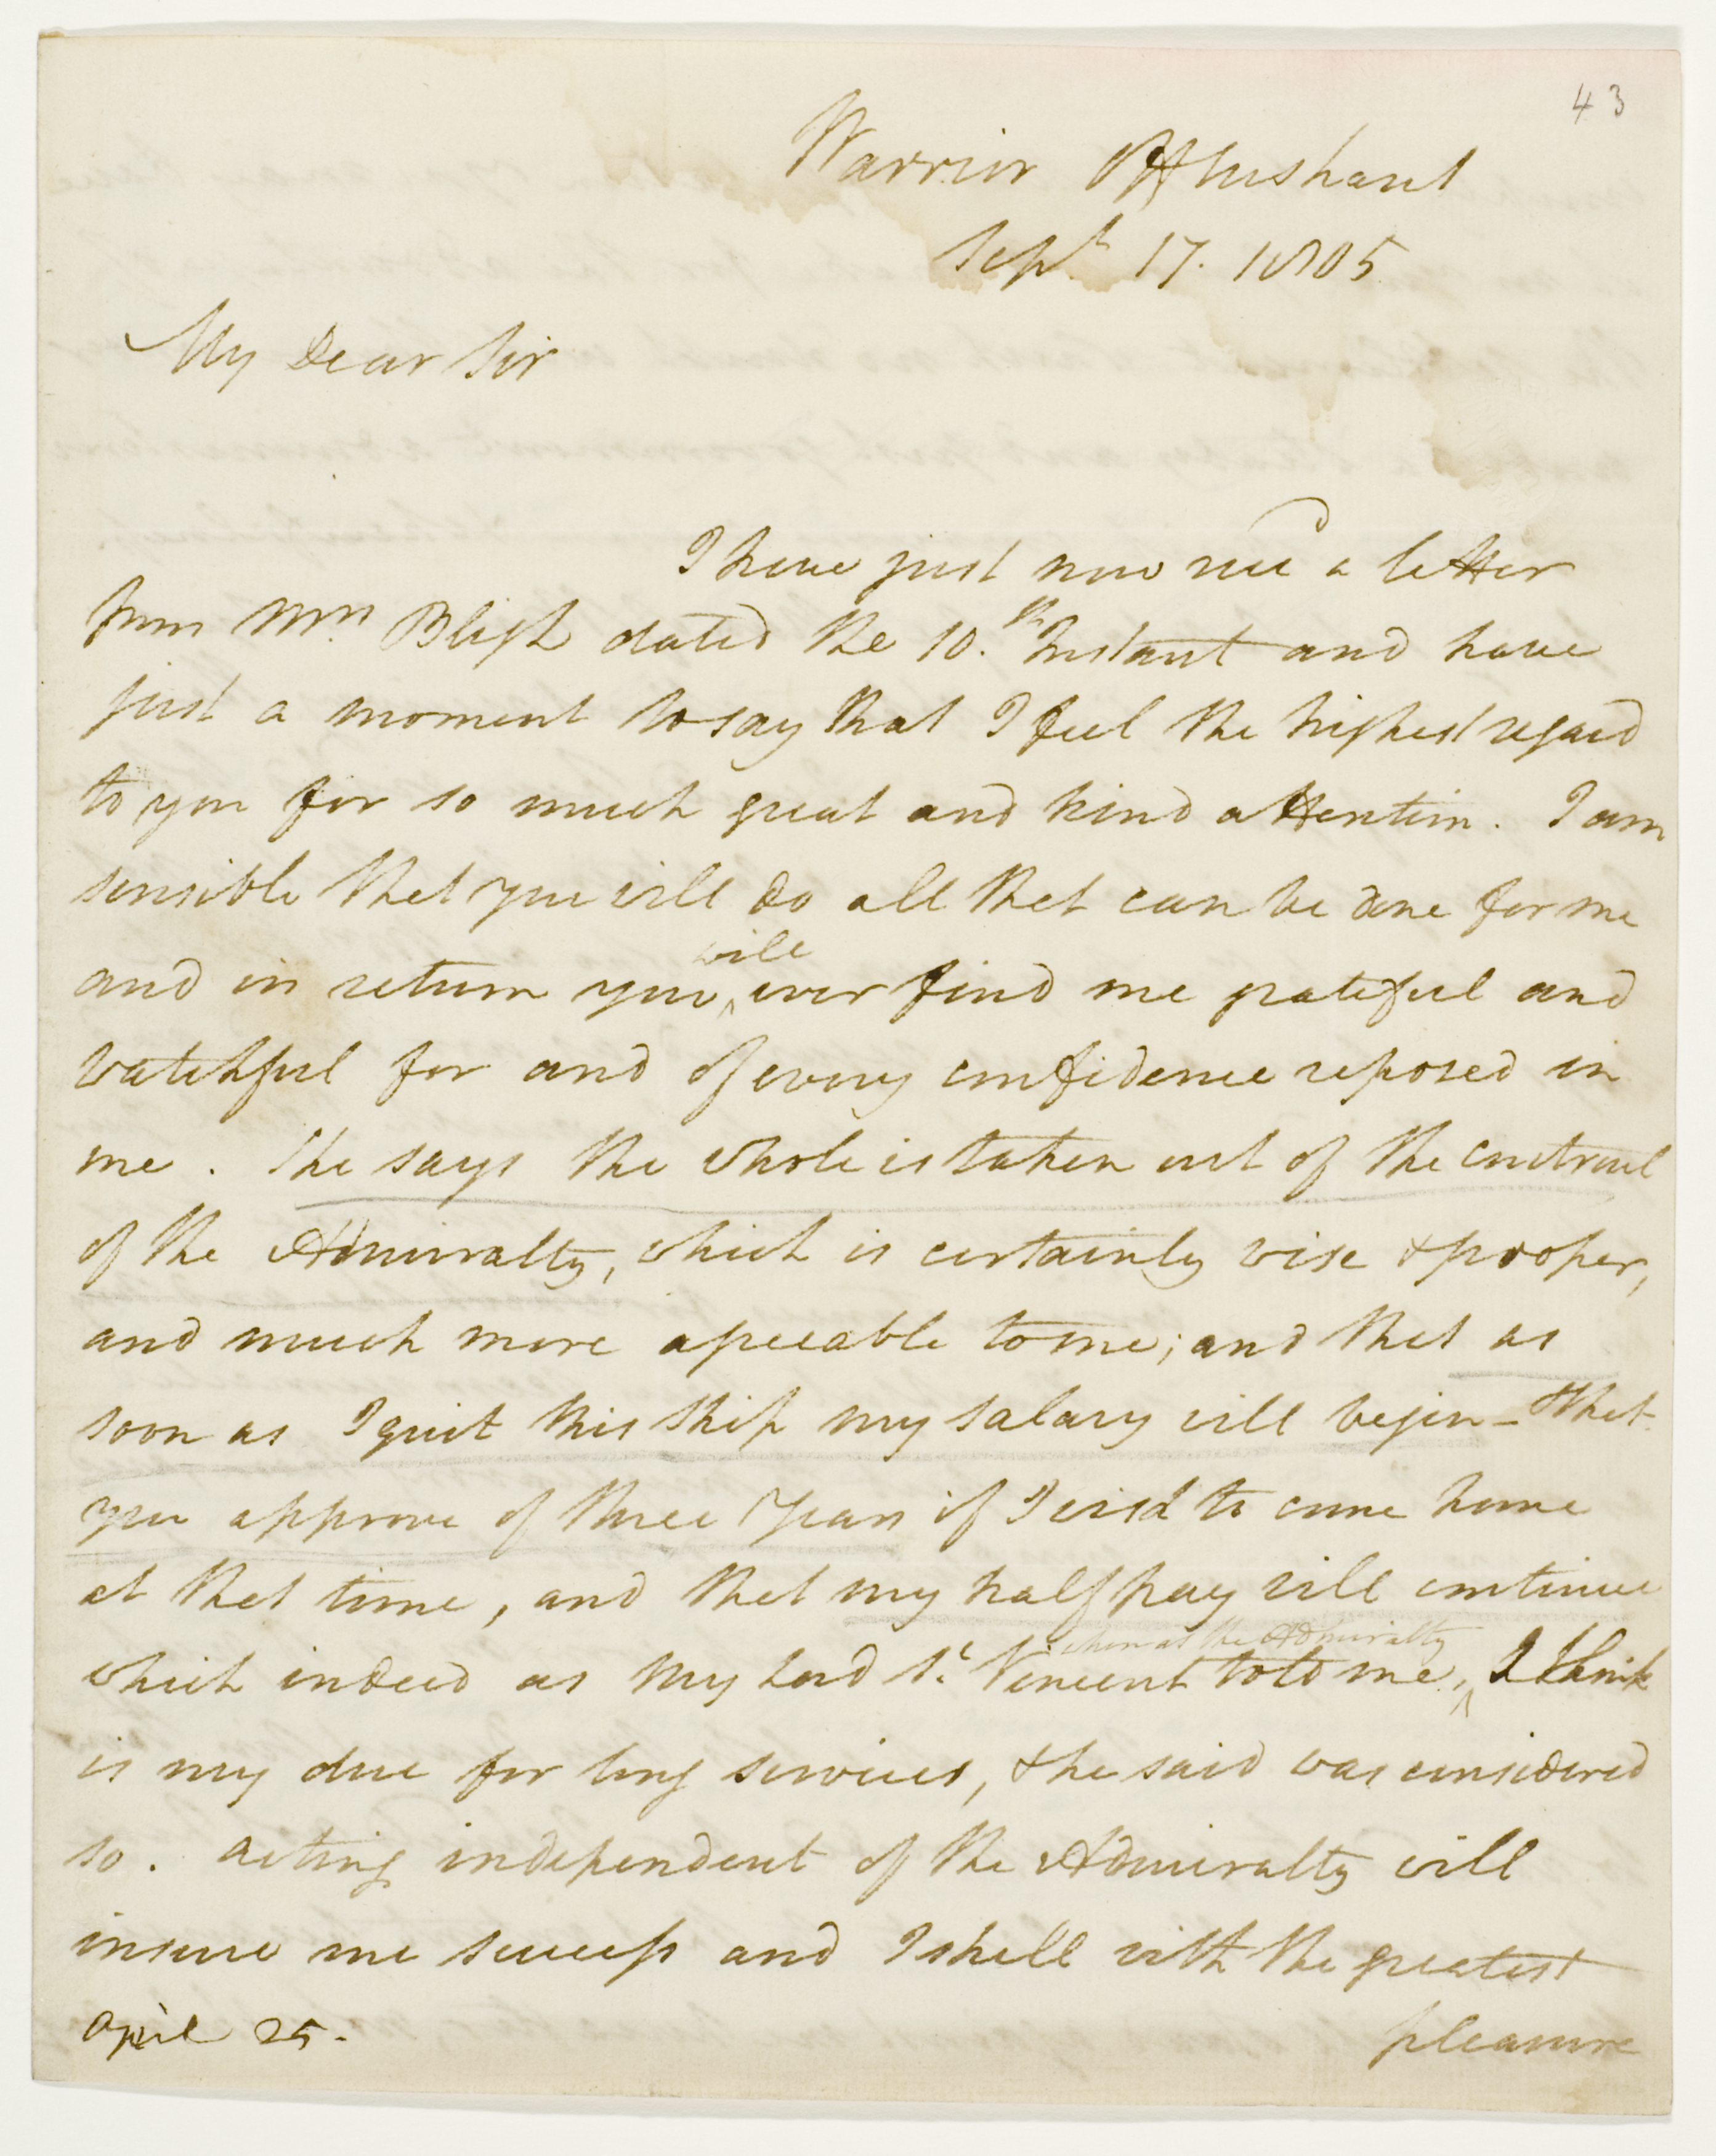 43
Warrior Off Ushant
Sept. 17. 1805
My Dear Sir
I have just now recd a letter
from Mrs. Bligh dated the 10.th Instant and have
just a moment to say that I feel the highest regard
to you for so much great and kind attention. I am
sensible that you will do all that can be done for me
and in return you will ever find me grateful and
watchful for and of every confidence reposed in
me. She says the whole is taken out of the controul
of the Admiralty, which is certainly wise & proper,
and much more agreeable to me; and that as
soon as I quit this ship my salary will begin - that
you approve of three Years if I wish'd to come home
at that time, and that my half pay will continue
which indeed as My Lord St. Vincent told me, when at the Admiralty I think
is my due for long services, & he said was considered
so. Acting independent of the Admiralty will
insure me success and I shall with the greatest
April 25.
pleasure